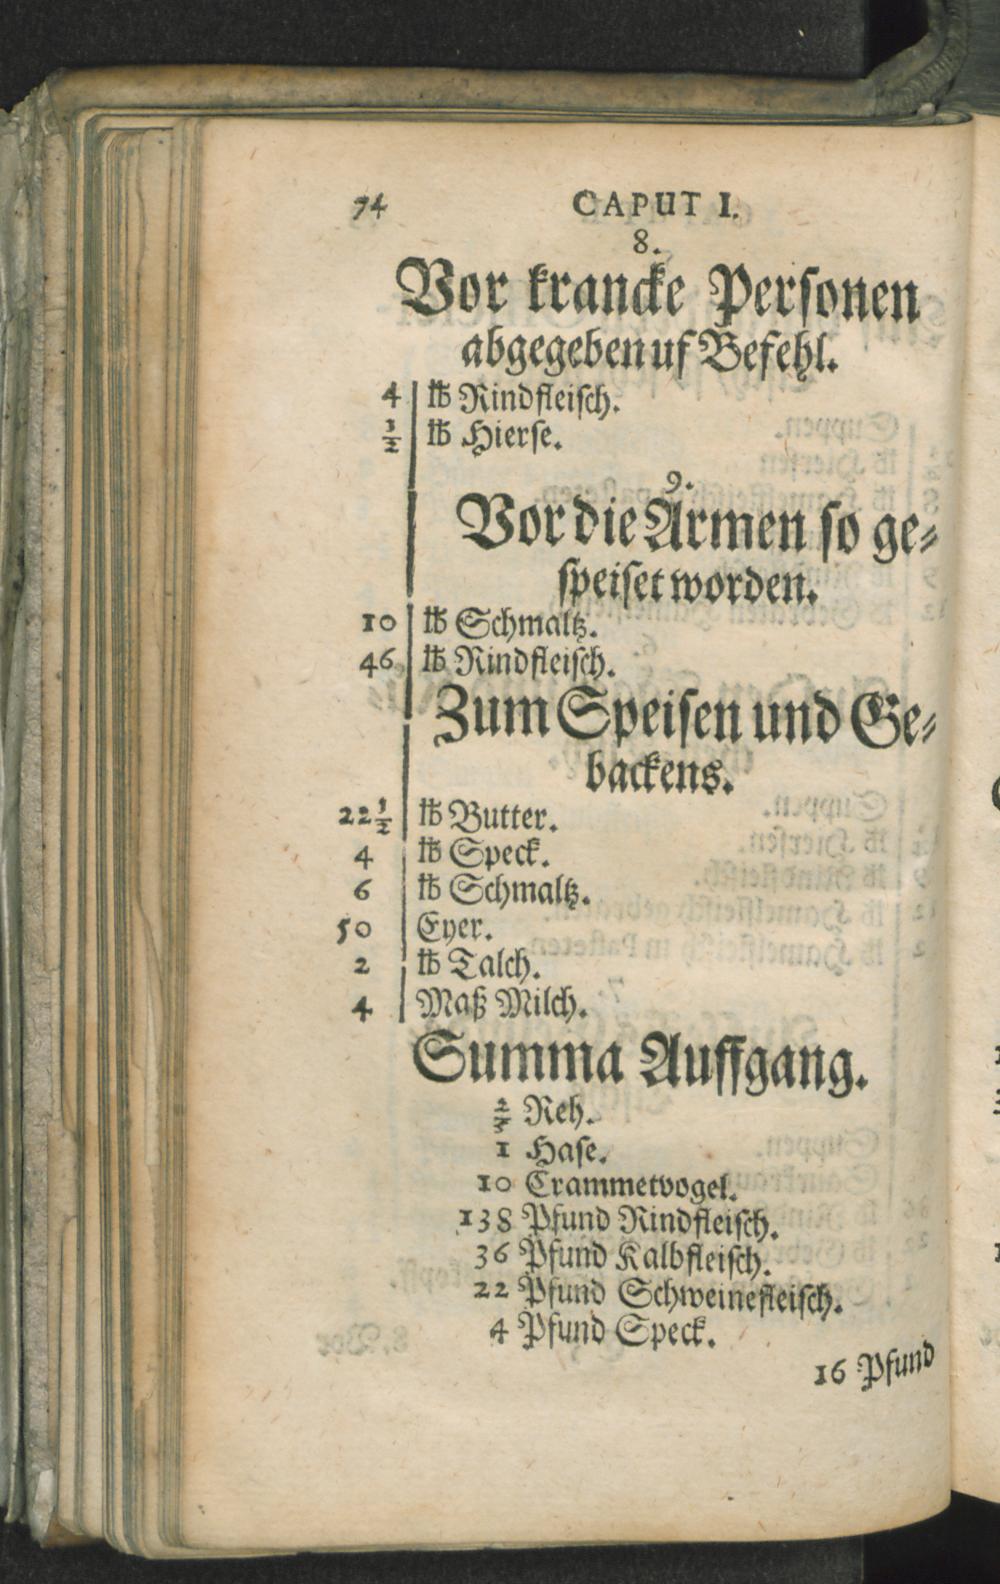 74 CAPUT I.
8.
Vor krancke Personen
abgegeben uf Befehl.
4 ℔ Rindfleisch.
½ ℔ Hierse.
9.
Vor die Armen so ge⸗
speiset worden.
10 ℔ Schmaltz.
46 ℔ Rindfleisch.
Zum Speisen und Ge⸗
backens.
22½ ℔ Butter.
4 ℔ Speck.
6 ℔ Schmaltz.
50 Eyer.
2 ℔ Talch.
4 Maß Milch.
Summa Auffgang.
Reh.
1 Hase.
10 Crammetvogel.
138 Pfund Rindfleisch.
36 Pfund Kalbfleisch.
22 Pfund Schweinefleisch.
4 Pfund Speck.
16 Pfund